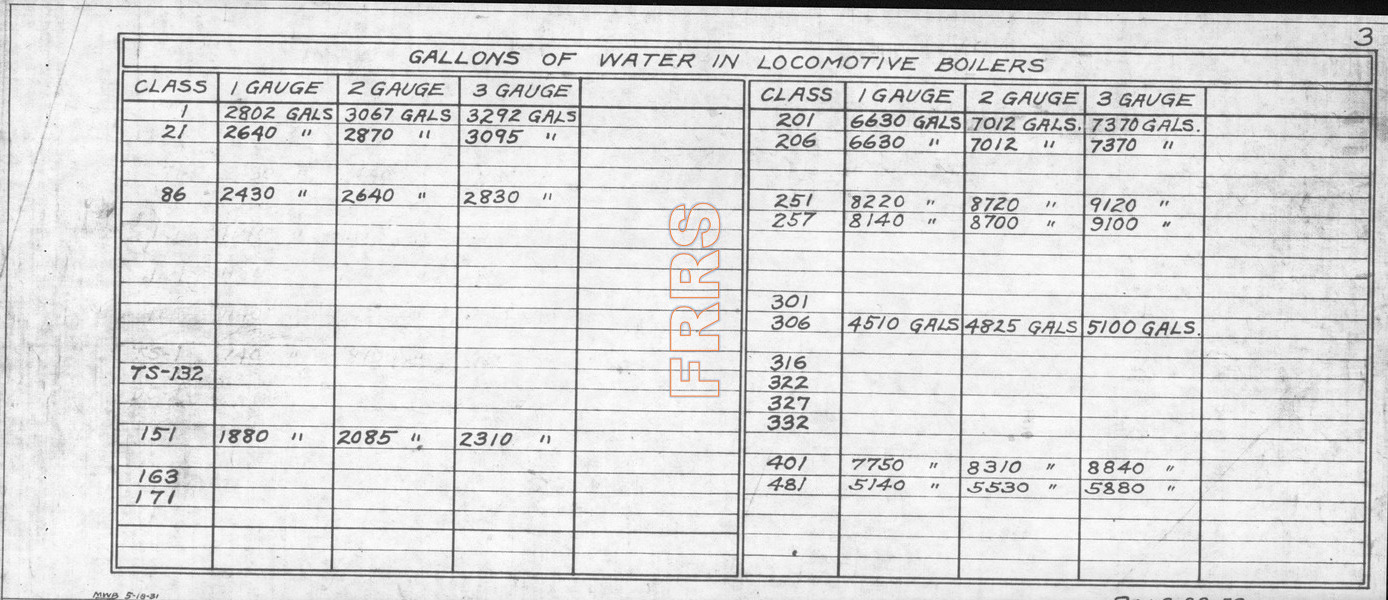 3
GALLONS OF WATER IN LOCOMOTIVE BOILERS
CLASS 1 GAUGE 2 GAUGE 3 GAUGE
1 2802 GALS 3067 GALS 3292 GALS
21 2640 " 2870 " 3095 "
86 2430 " 2640 " 2830 "
TS-132
151 1880 " 2085 " 2310 "
163
171
CLASS 1 GAUGE 2 GAUGE 3 GAUGE
201 6630 GALS 7012 GALS. 7370 GALS.
206 6630 " 7012 " 7370 "
251 8220 " 8720 " 9120 "
257 8140 " 8700 " 9100 "
301
306 4510 GALS 4825 GALS 5100 GALS.
316
322
327
332
401 7750 " 8310 " 8840 "
481 5140 " 5530 " 5880 "
FRRS
MWB 5-18-31